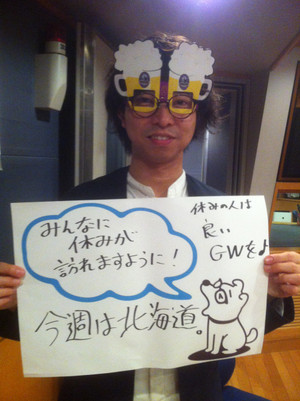 みんなに
休みが
訪れますように！
休みの人は
良い
GWを♪
今週は北海道。